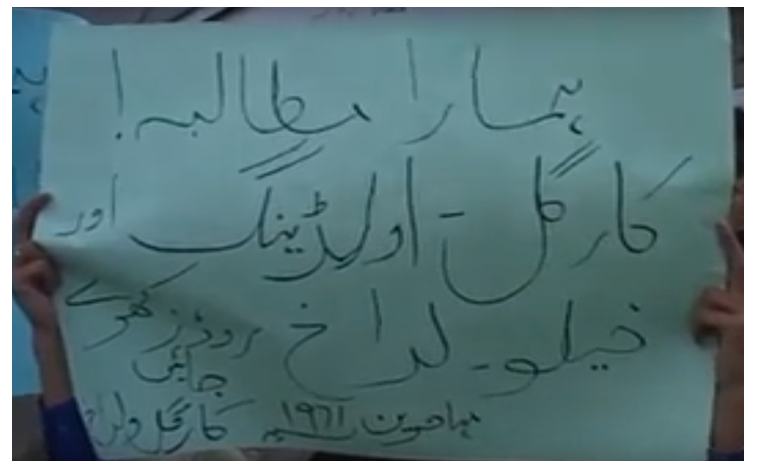 ہمارا مطالبہ!
کارگل - اولڈینگ اور
خپلو - لداخ روڈز کھولے
جائیں
مہاجرین 1971ء کارگل و لداخ